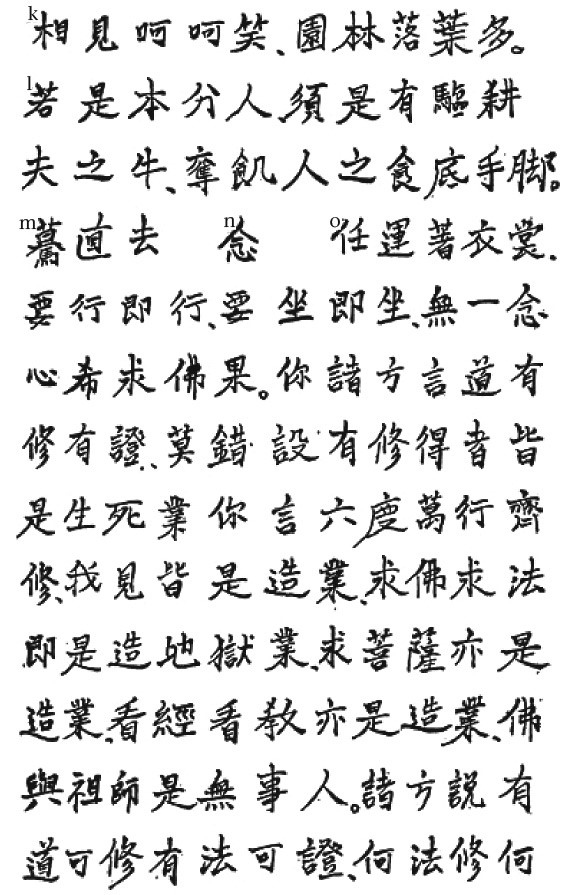 k相見呵呵笑、園林落葉多。
l若是本分人、須是有驅耕
夫之牛、奪飢人之食底手脚。
m驀直去 n念 o任運著衣裳.
要行即行、要坐即坐、無一念
心希求佛果。你諸方言道有
修有證、莫錯設有修得者皆
是生死業你言六度萬行齊
修、我見皆是造業、求佛求法
即是造地獄業、求菩薩亦是
造業、看經看教亦是造業、佛
與祖師是無事人。諸方說有
道可修有法可證、何法修何